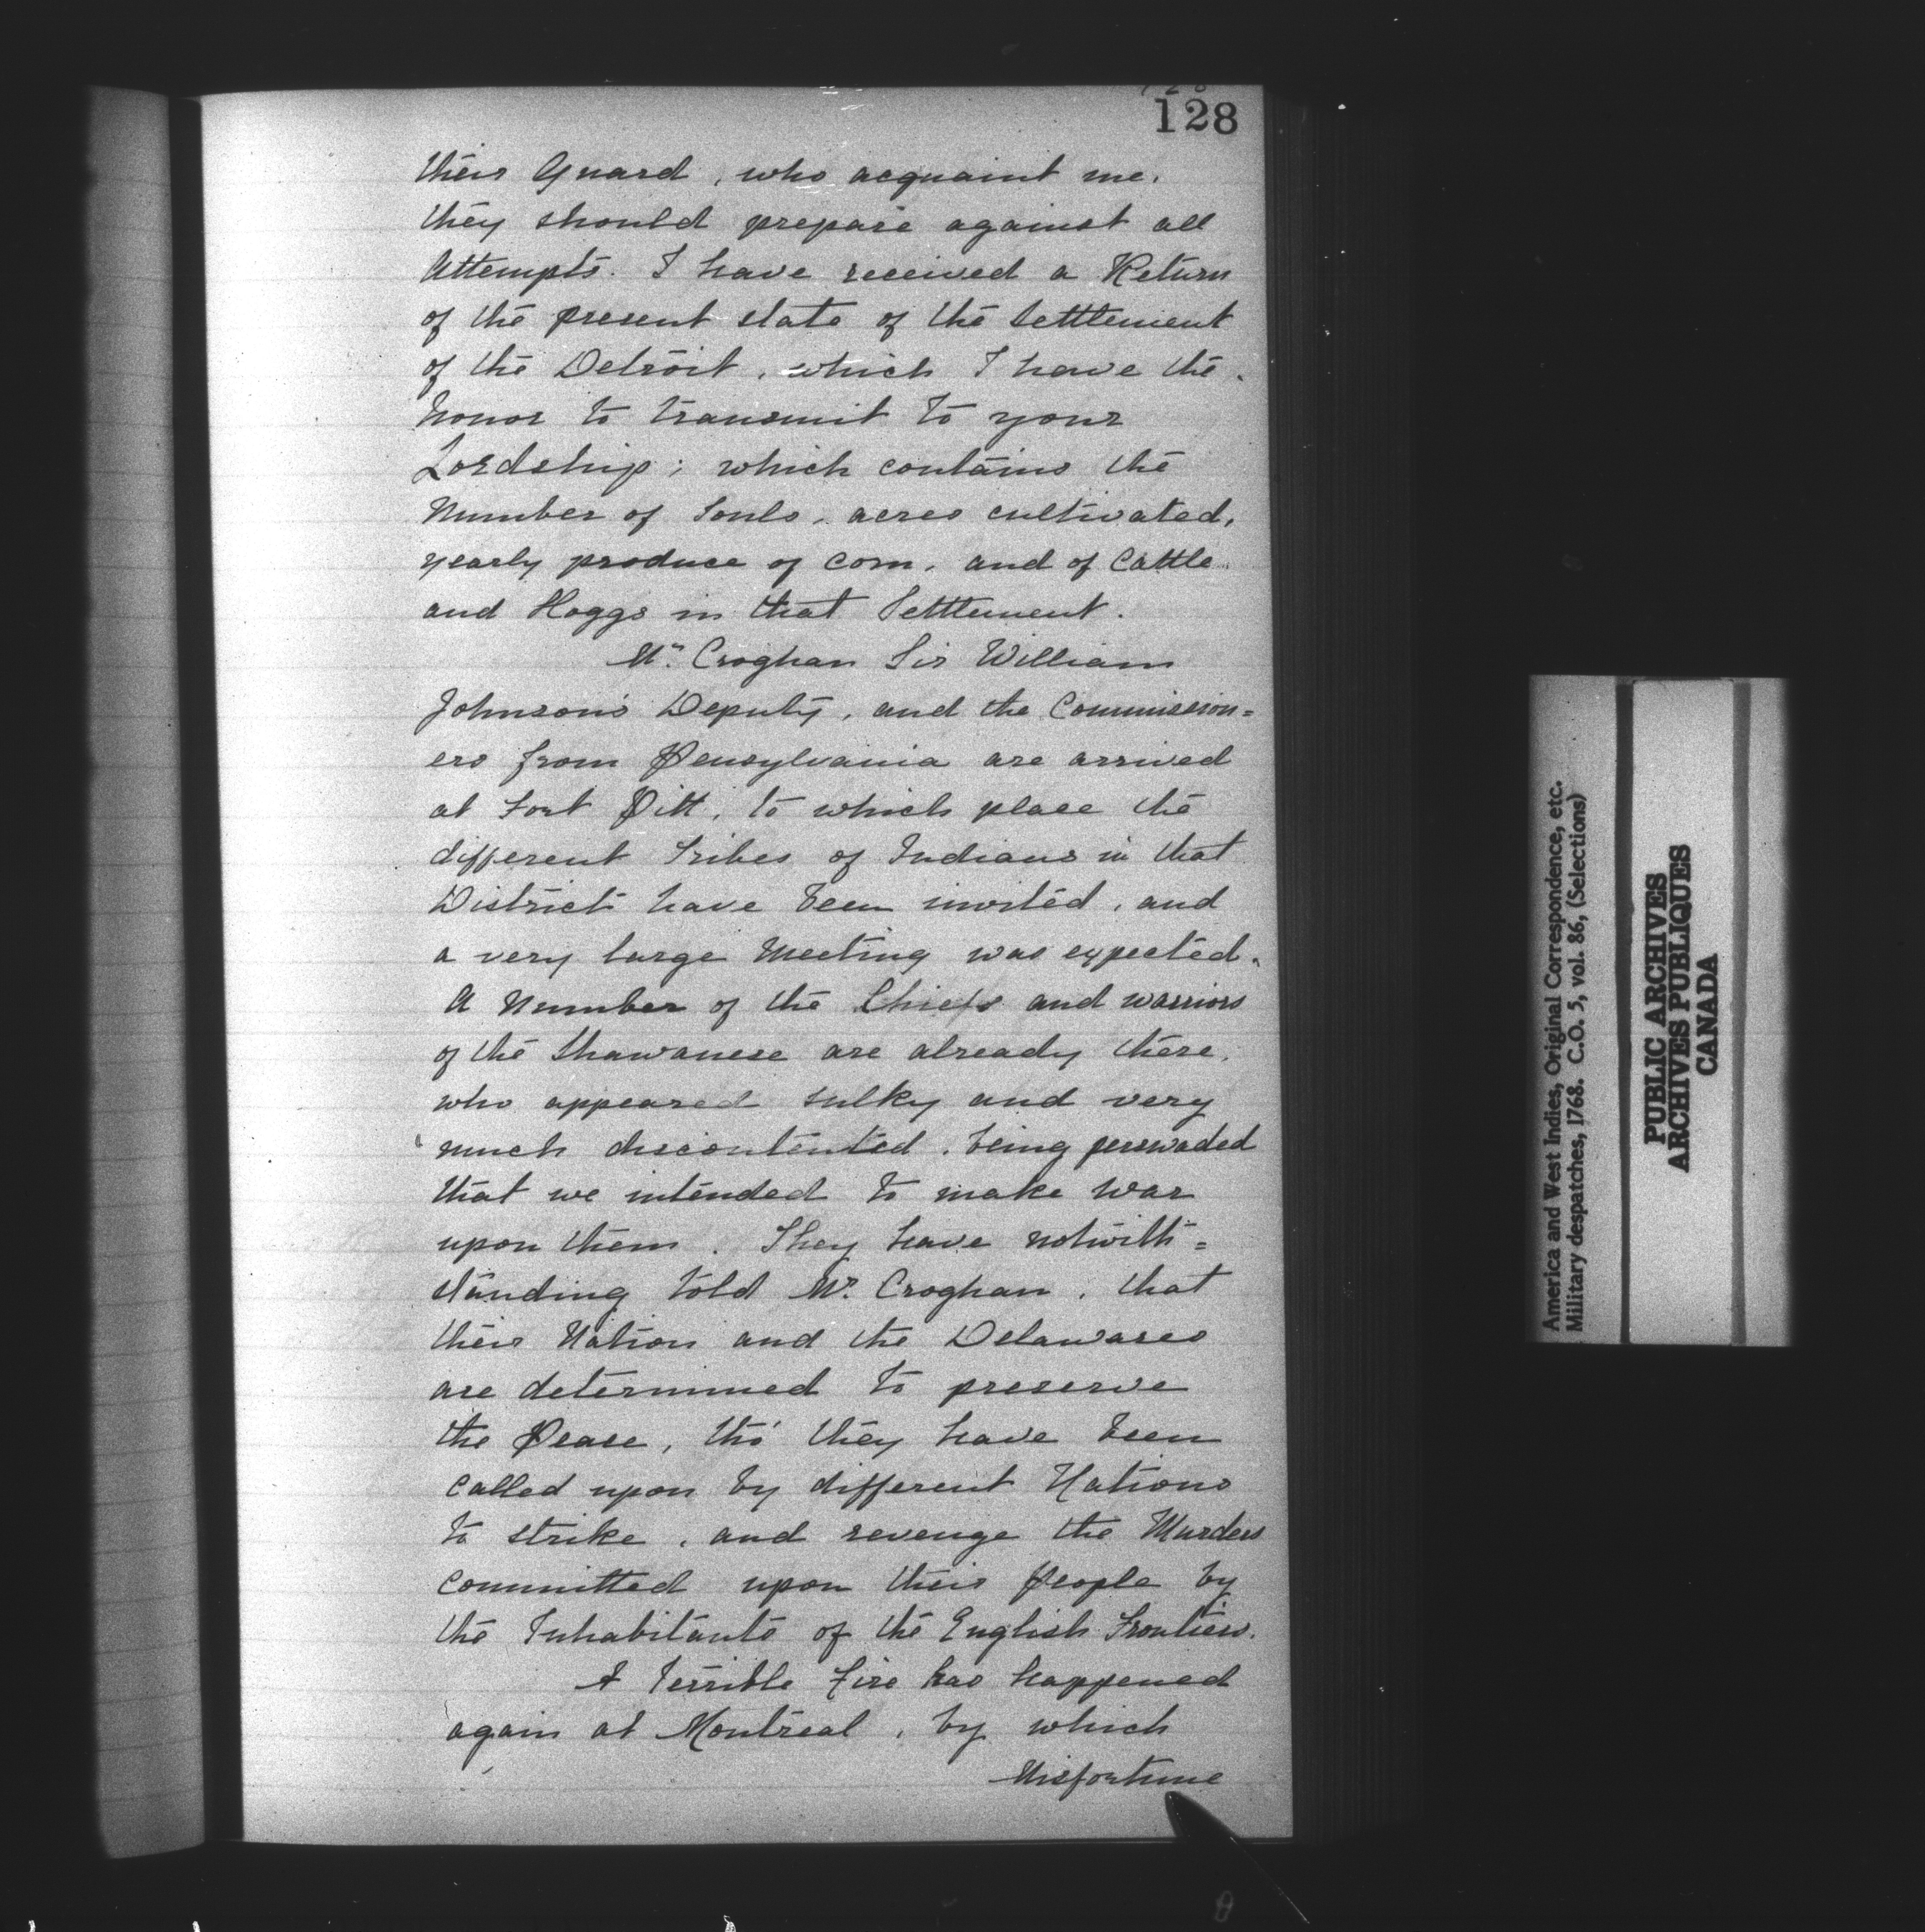 128
their Guard, who acquaint me,
they should prepare against all
Attempts. I have received a Return
of the present state of the Settlement
of the Detroit, which I have the
honor to transmit to your
Lordship; which contains the
Number of Souls, acres cultivated,
yearly produce of corn, and of Cattle
and Hoggs in that Settlement.
Mr. Croghan Sir William
Johnson's Deputy, and the Commission=
ers from Pensylvania are arrived
at Fort Pitt, to which place the
different Tribes of Indians in that
District have been invited, and
a very large Meeting was expected.
A Number of the Chiefs and warriors
of the Shawanese are already there,
who appeared sulky and very
much discontented, being perswaded
that we intended to make War
upon them. They have notwith=
standing told Mr. Croghan, that
their Nation and the Delawares
are determined to preserve
the Peace, tho' they have been
called upon by different Nations
to strike, and revenge the Murders
committed upon their People by
the Inhabitants of the English Frontiers.
A terrible Fire has happened
again at Montreal, by which
Misfortune
America and West Indies, Original Correspondence, etc.
Military despatches, 1768. C.O. 5, vol. 86, (Selections)
PUBLIC ARCHIVES
ARCHIVES PUBLIQUES
CANADA